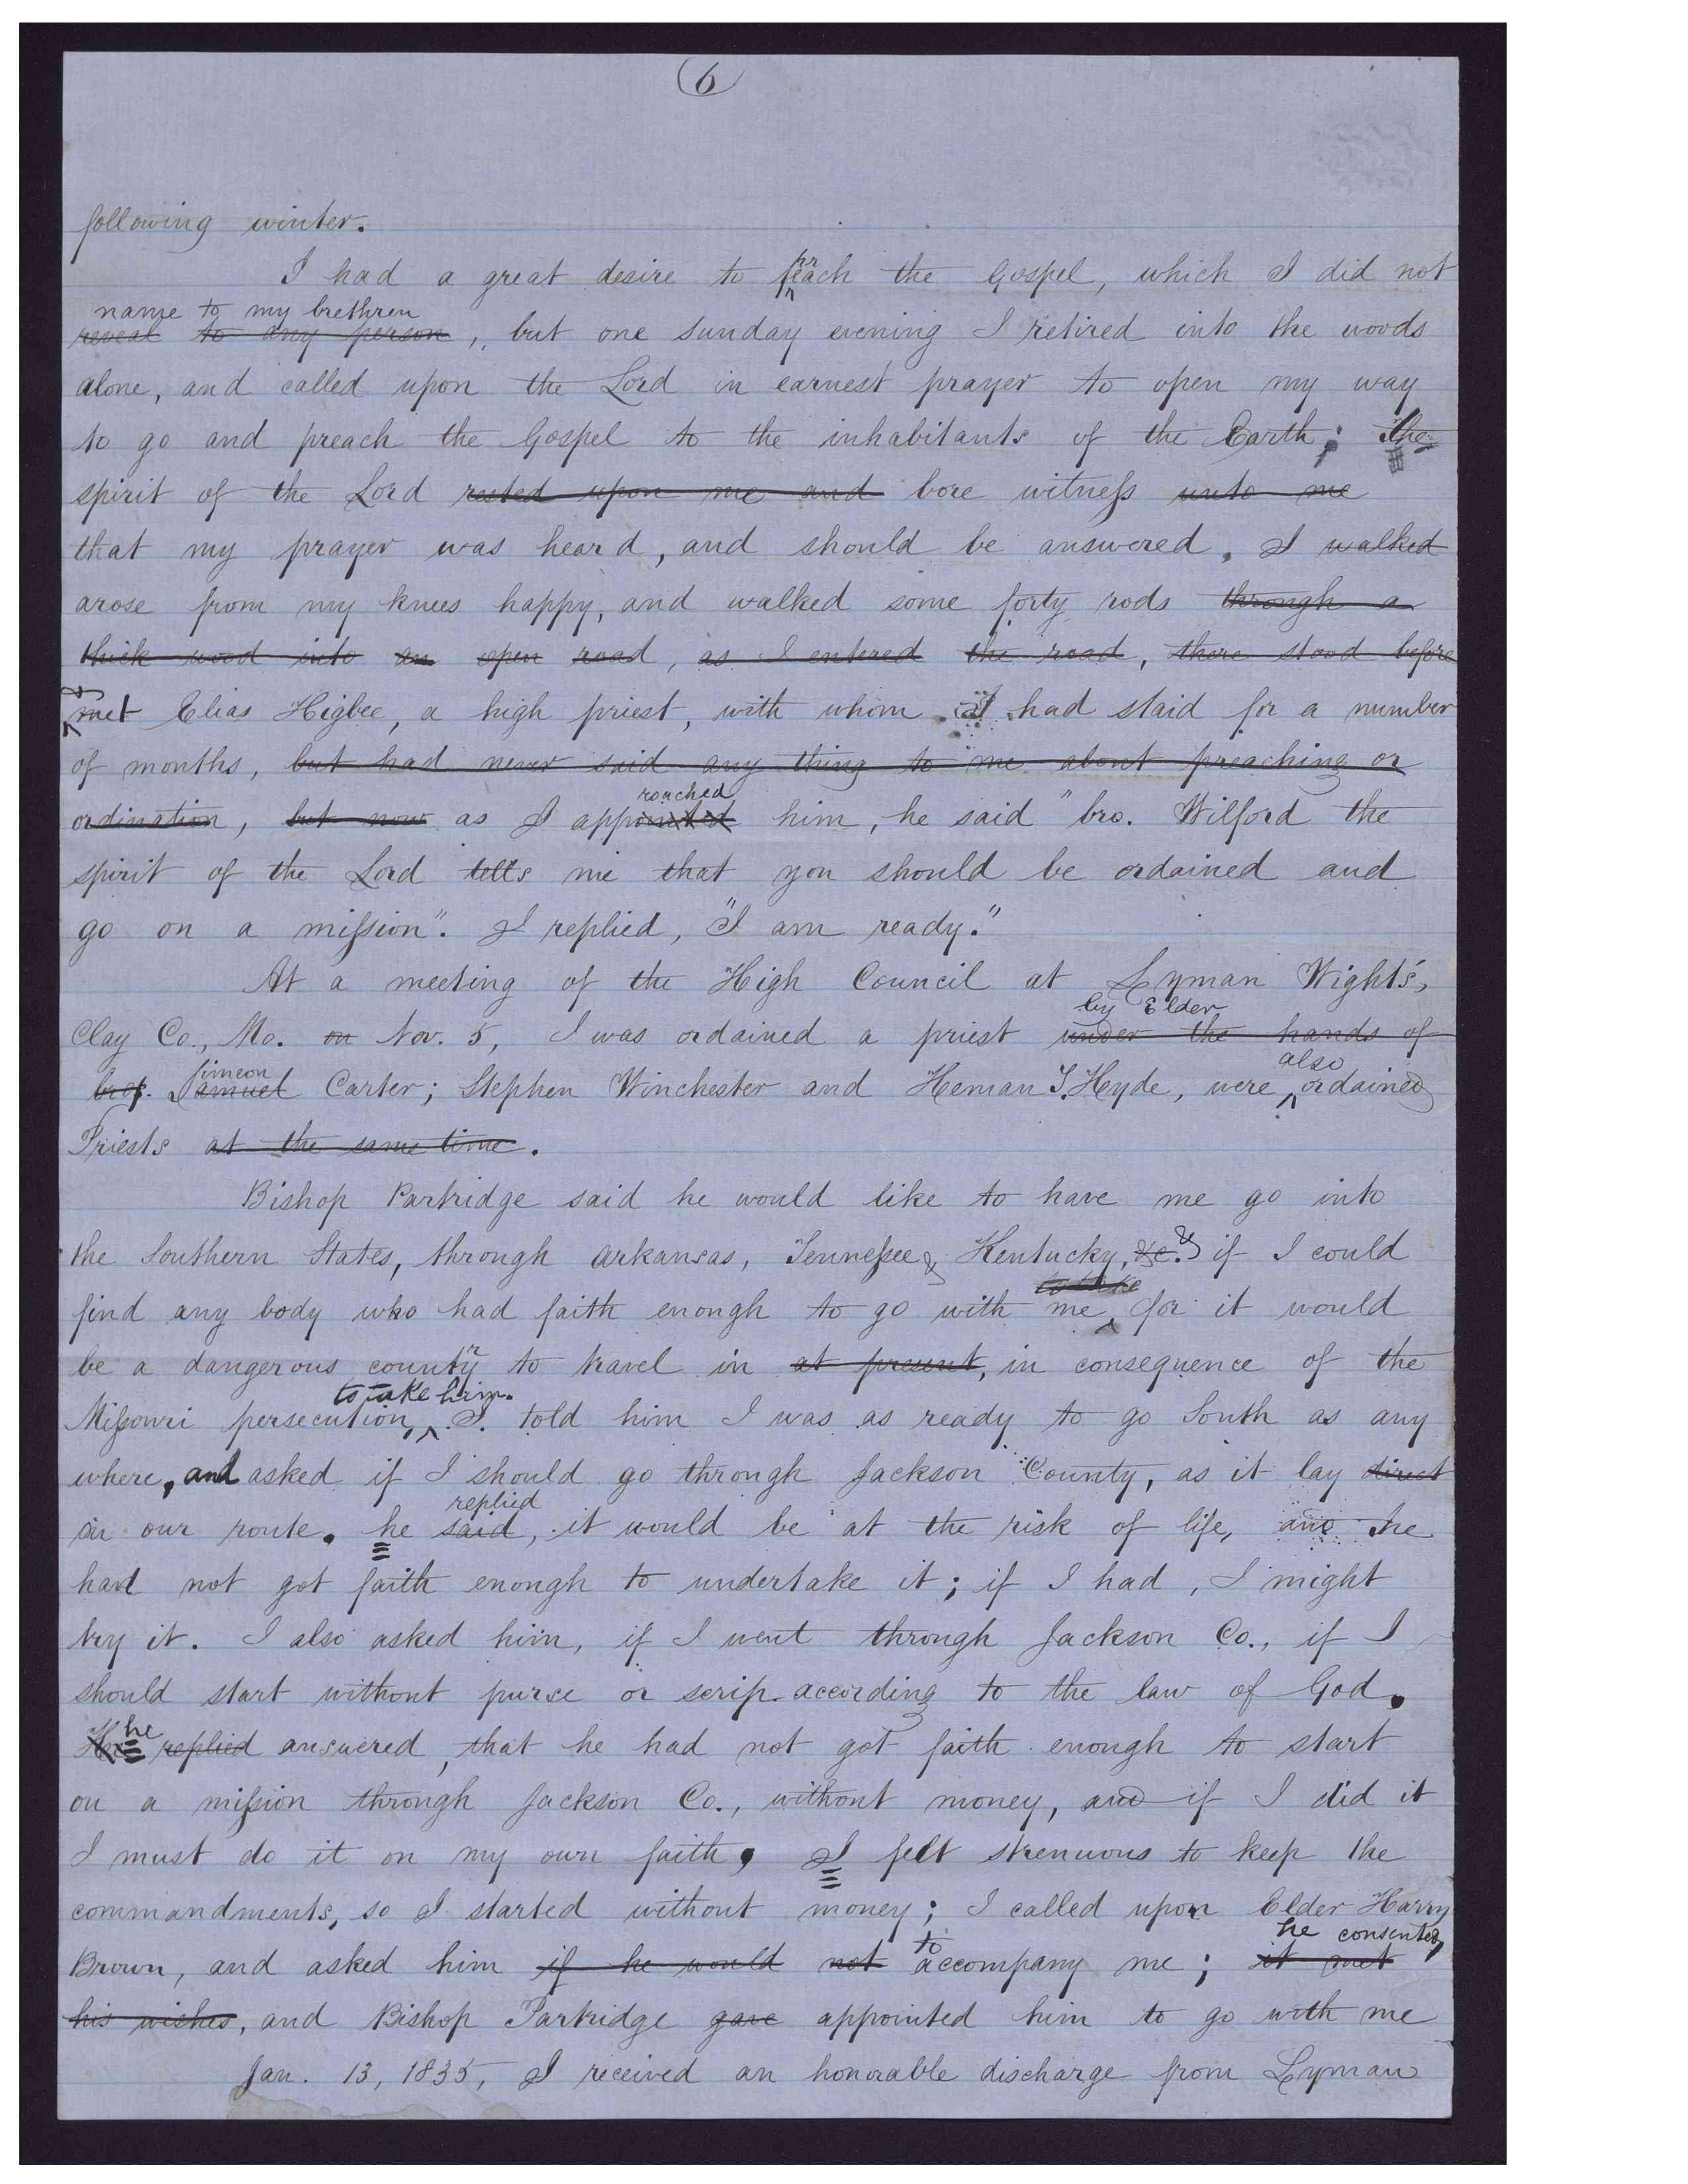 6
following winter.
I had a great desire to preach the Gospel, which I did not
name to my brethren
reveal to any person, but one sunday evening I retired into the woods
alone, and called upon the Lord in earnest prayer to open my way
to go and preach the Gospel to the inhabitants of the Earth; The
spirit of the Lord rested upon me and bore witness unto me
that my prayer was heard, and should be answered. I walked
arose from my knees happy, and walked some forty rods through a
thick wood into an open road, as I entered the road, there stood before
& met Elias Higbee, a high priest, with whom I had staid for a number
of months, but had never said any thing to me about preaching or
roached
ordination, but now as I appointed him, he said "bro. Wilford the
spirit of the Lord tells me that you should be ordained and
go on a mission". I replied, "I am ready."
At a meeting of the High Council at Lyman Wight's,
by Elder
Clay Co., Mo. on Nov. 5, I was ordained a priest under the hands of
imeon also
bro. Samuel Carter; Stephen Winchester and Heman T. Hyde, were ordained
Priests at the same time.
Bishop Partridge said he would like to have me go into
the Southern States, through Arkansas, Tennessee & Kentucky, &c. & if I could
to take
find any body who had faith enough to go with me, for it would
be a dangerous country to travel in at present, in consequence of the
to take him.
Missouri persecution, I told him I was as ready to go South as any
where, and asked if I should go through Jackson County, as it lay direct
replied
in our route. he said, it would be at the risk of life, and he
had not got faith enough to undertake it; if I had, I might
try it. I also asked him, if I went through Jackson Co., if I
should start without purse or scrip according to the law of God.
he
He replied answered, that he had not got faith enough to start
on a mission through Jackson Co., without money, and if I did it
I must do it on my own faith, I felt strenuous to keep the
commandments, so I started without money; I called upon Elder Harry
to he consented,
Brown, and asked him if he would not accompany me; it met
his wishes, and Bishop Partridge gave appointed him to go with me
Jan. 13, 1835, I received an honorable discharge from Lyman